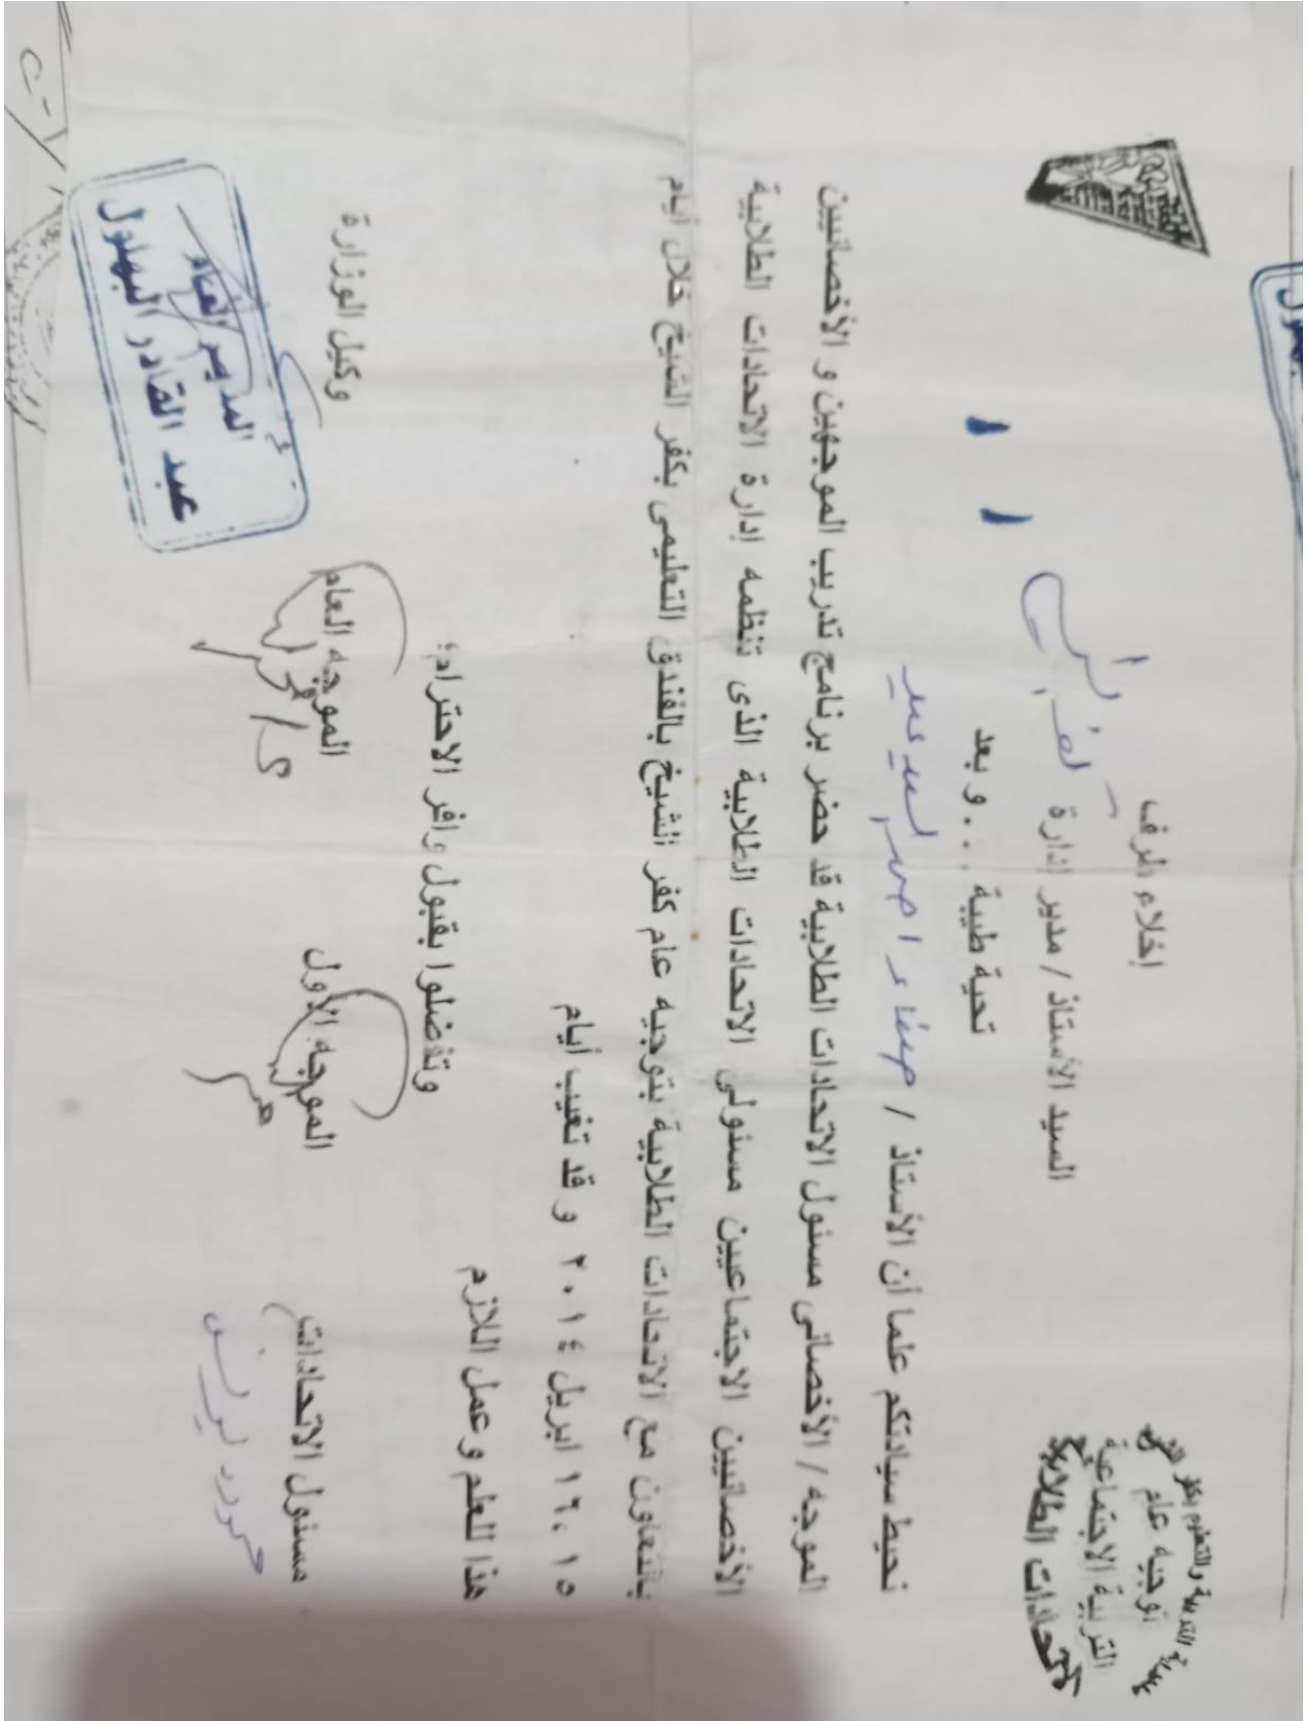 مديرية التربية والتعليم بكفر الشيخ
توجيه عام
التربية الاجتماعية
الاتحادات الطلابية
إخلاء طرف
السيد الأستاذ / مدير إدارة
تحية طيبة . . و بعد
نحيط سيادتكم علما أن الأستاذ / صفاء السيد عيد
الموجه / الأخصائى مسئول الاتحادات الطلابية قد حضر برنامج تدريب الموجهين و الأخصائيين
الأخصائيين الاجتماعيين مسئولى الاتحادات الطلابية الذى تنظمه إدارة الاتحادات الطلابية
بالتعاون مع الاتحادات الطلابية بتوجيه عام كفر الشيخ بالفندق التعليمى بكفر الشيخ خلال أيام
١٥ ،١٦ ابريل ٢٠١٤ و قد تغيب أيام
هذا للعلم وعمل اللازم
وتفضلوا بقبول وافر الاحترام؛
مسئول الاتحادات الموجه الأول الموجه العام وكيل الوزارة
المدير العام
عبد القادر البهلول